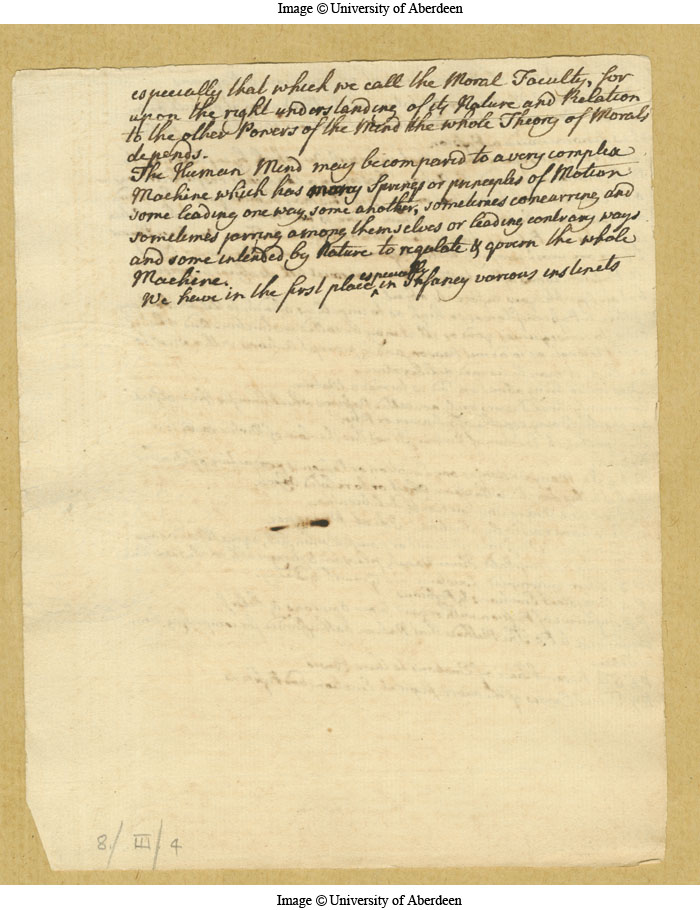 Image © University of Aberdeen
especially that which we call the Moral Faculty, for
upon the right understanding of its Nature and Relation
to the other Powers of the Mind the whole Theory of Morals
depends.
The Human Mind may be compared to a very complex
Machine which has many Springs or principles of Motion
some leading one way, some another, sometimes concurring and
sometimes jarring among themselves or leading contrary ways
and some intended by Nature to regulate & govern the whole
Machine.
especially
We have in the first place ‸ in Infancy various instincts
8/ III/ 4
Image © University of Aberdeen